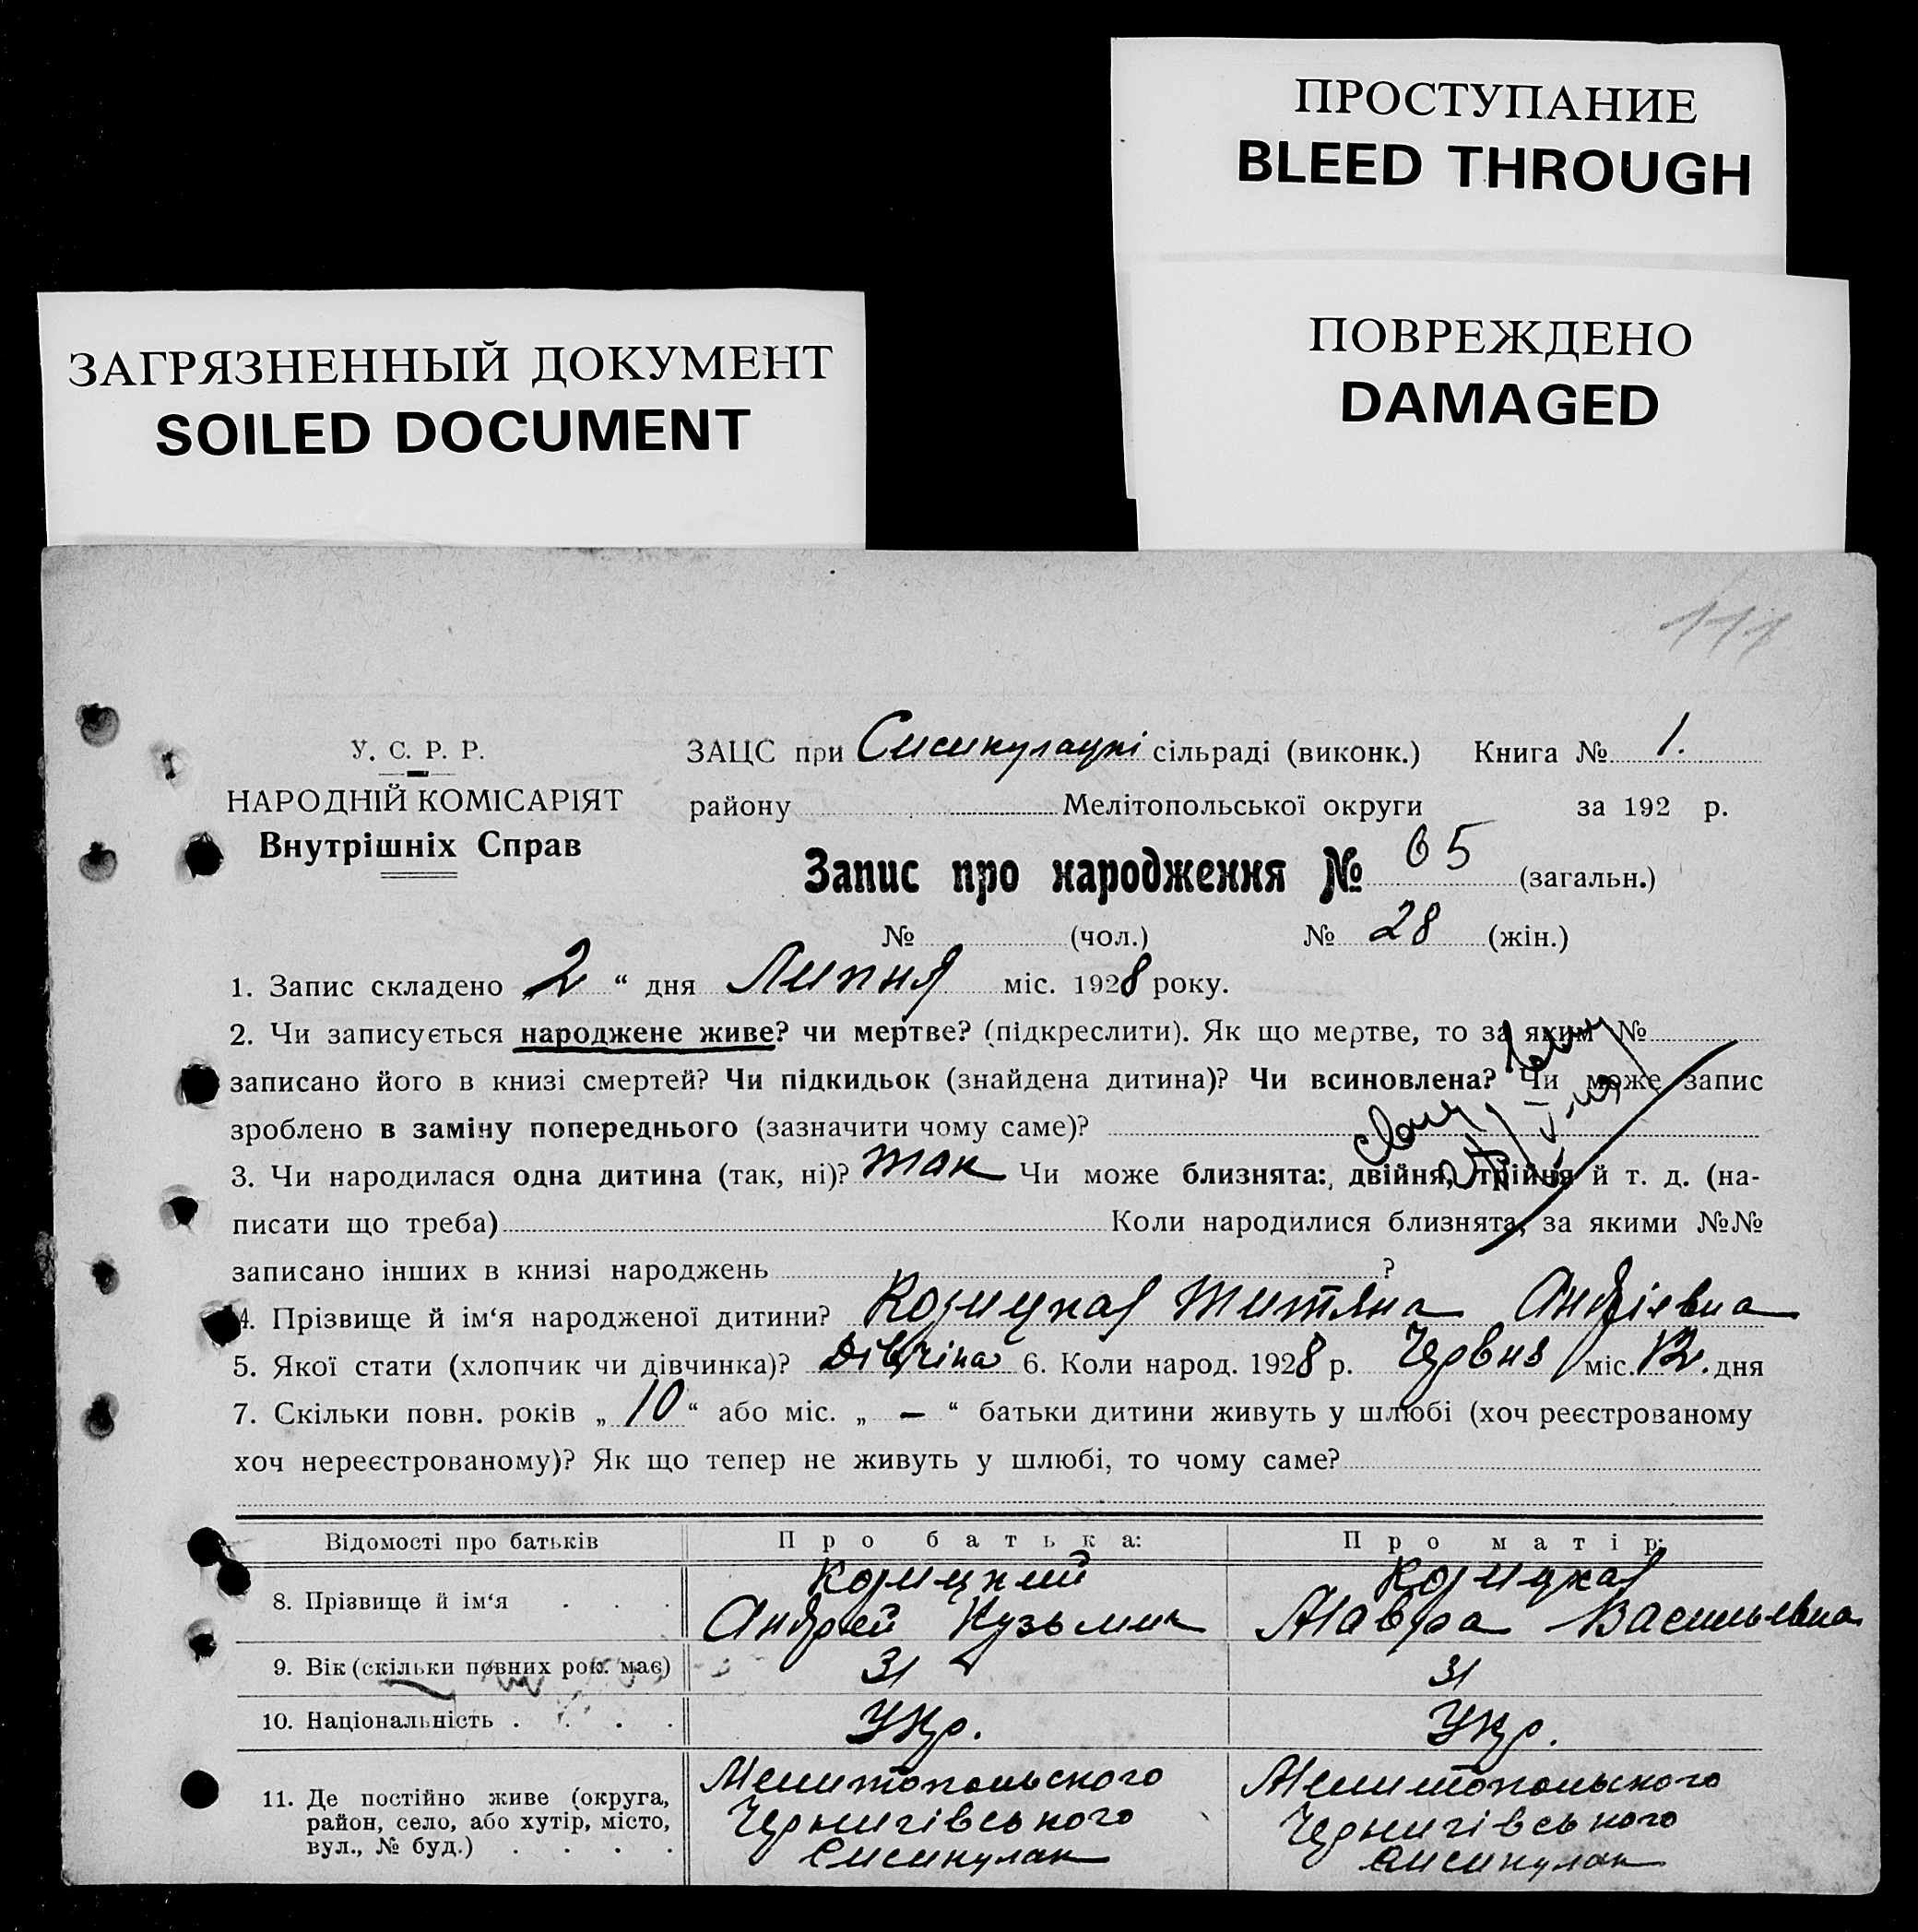 ПРОСТУПАНИЕ
BLEED THROUGH
ПОВРЕЖДЕНО
DAMAGED
ЗАГРЯЗНЕННЫЙ ДОКУМЕНТ
SOILED DOCUMENT
111
У. С. Р. Р.
НАРОДНІЙ КОМІСАРІЯТ
Внутрішніх Справ
ЗАЦС при Сисикулацкі сільраді (виконк.) Книга № 1.
району Мелітопольської округи за 192 р.
Запис про народження № 65 (загальн.)
№ (чол.) № 28 (жін.)
1. Запис складено „2“ дня Липня міс. 1928 року.
2. Чи записується народжене живе? чи мертве? (підкреслити). Як що мертве, то за яким №
записано його в книзі смертей? Чи підкидьок (знайдена дитина)? Чи всиновлена? Чи може запис
зроблено в заміну попереднього (зазначити чому саме)?
3. Чи народилася одна дитина (так, ні)? так Чи може близнята: двійня, трійня й т. д. (на-
писати що треба) Коли народилися близнята, за якими №№
записано інших в книзі народжень ?
4. Прізвище й ім‘я народженої дитини? Козицкая Титяна Андріевна
5. Якої стати (хлопчик чи дівчинка)? Дівчіна 6. Коли народ. 1928 р. Червня міс. 12. дня
7. Скільки повн. років „10“ або міс. „ — “ батьки дитини живуть у шлюбі (хоч реєстрованому
хоч нереєстрованому)? Як що тепер не живуть у шлюбі, то чому саме?
Відомості про батьків Про батька: Про матір:
8. Прізвище й ім‘я . . . Козицкий Андрей Кузьмик Козицкая Мавра Васильевна
9. Вік (скільки повних рок. має) 31 31
10. Національність . . . . Укр. Укр.
11. Де постійно живе (округа, район, село, або хутір, місто, вул., № буд.) . . . . Мелитопольского Чернигівського Сисикулак Мелитопольского Чернигівського Сисикулак